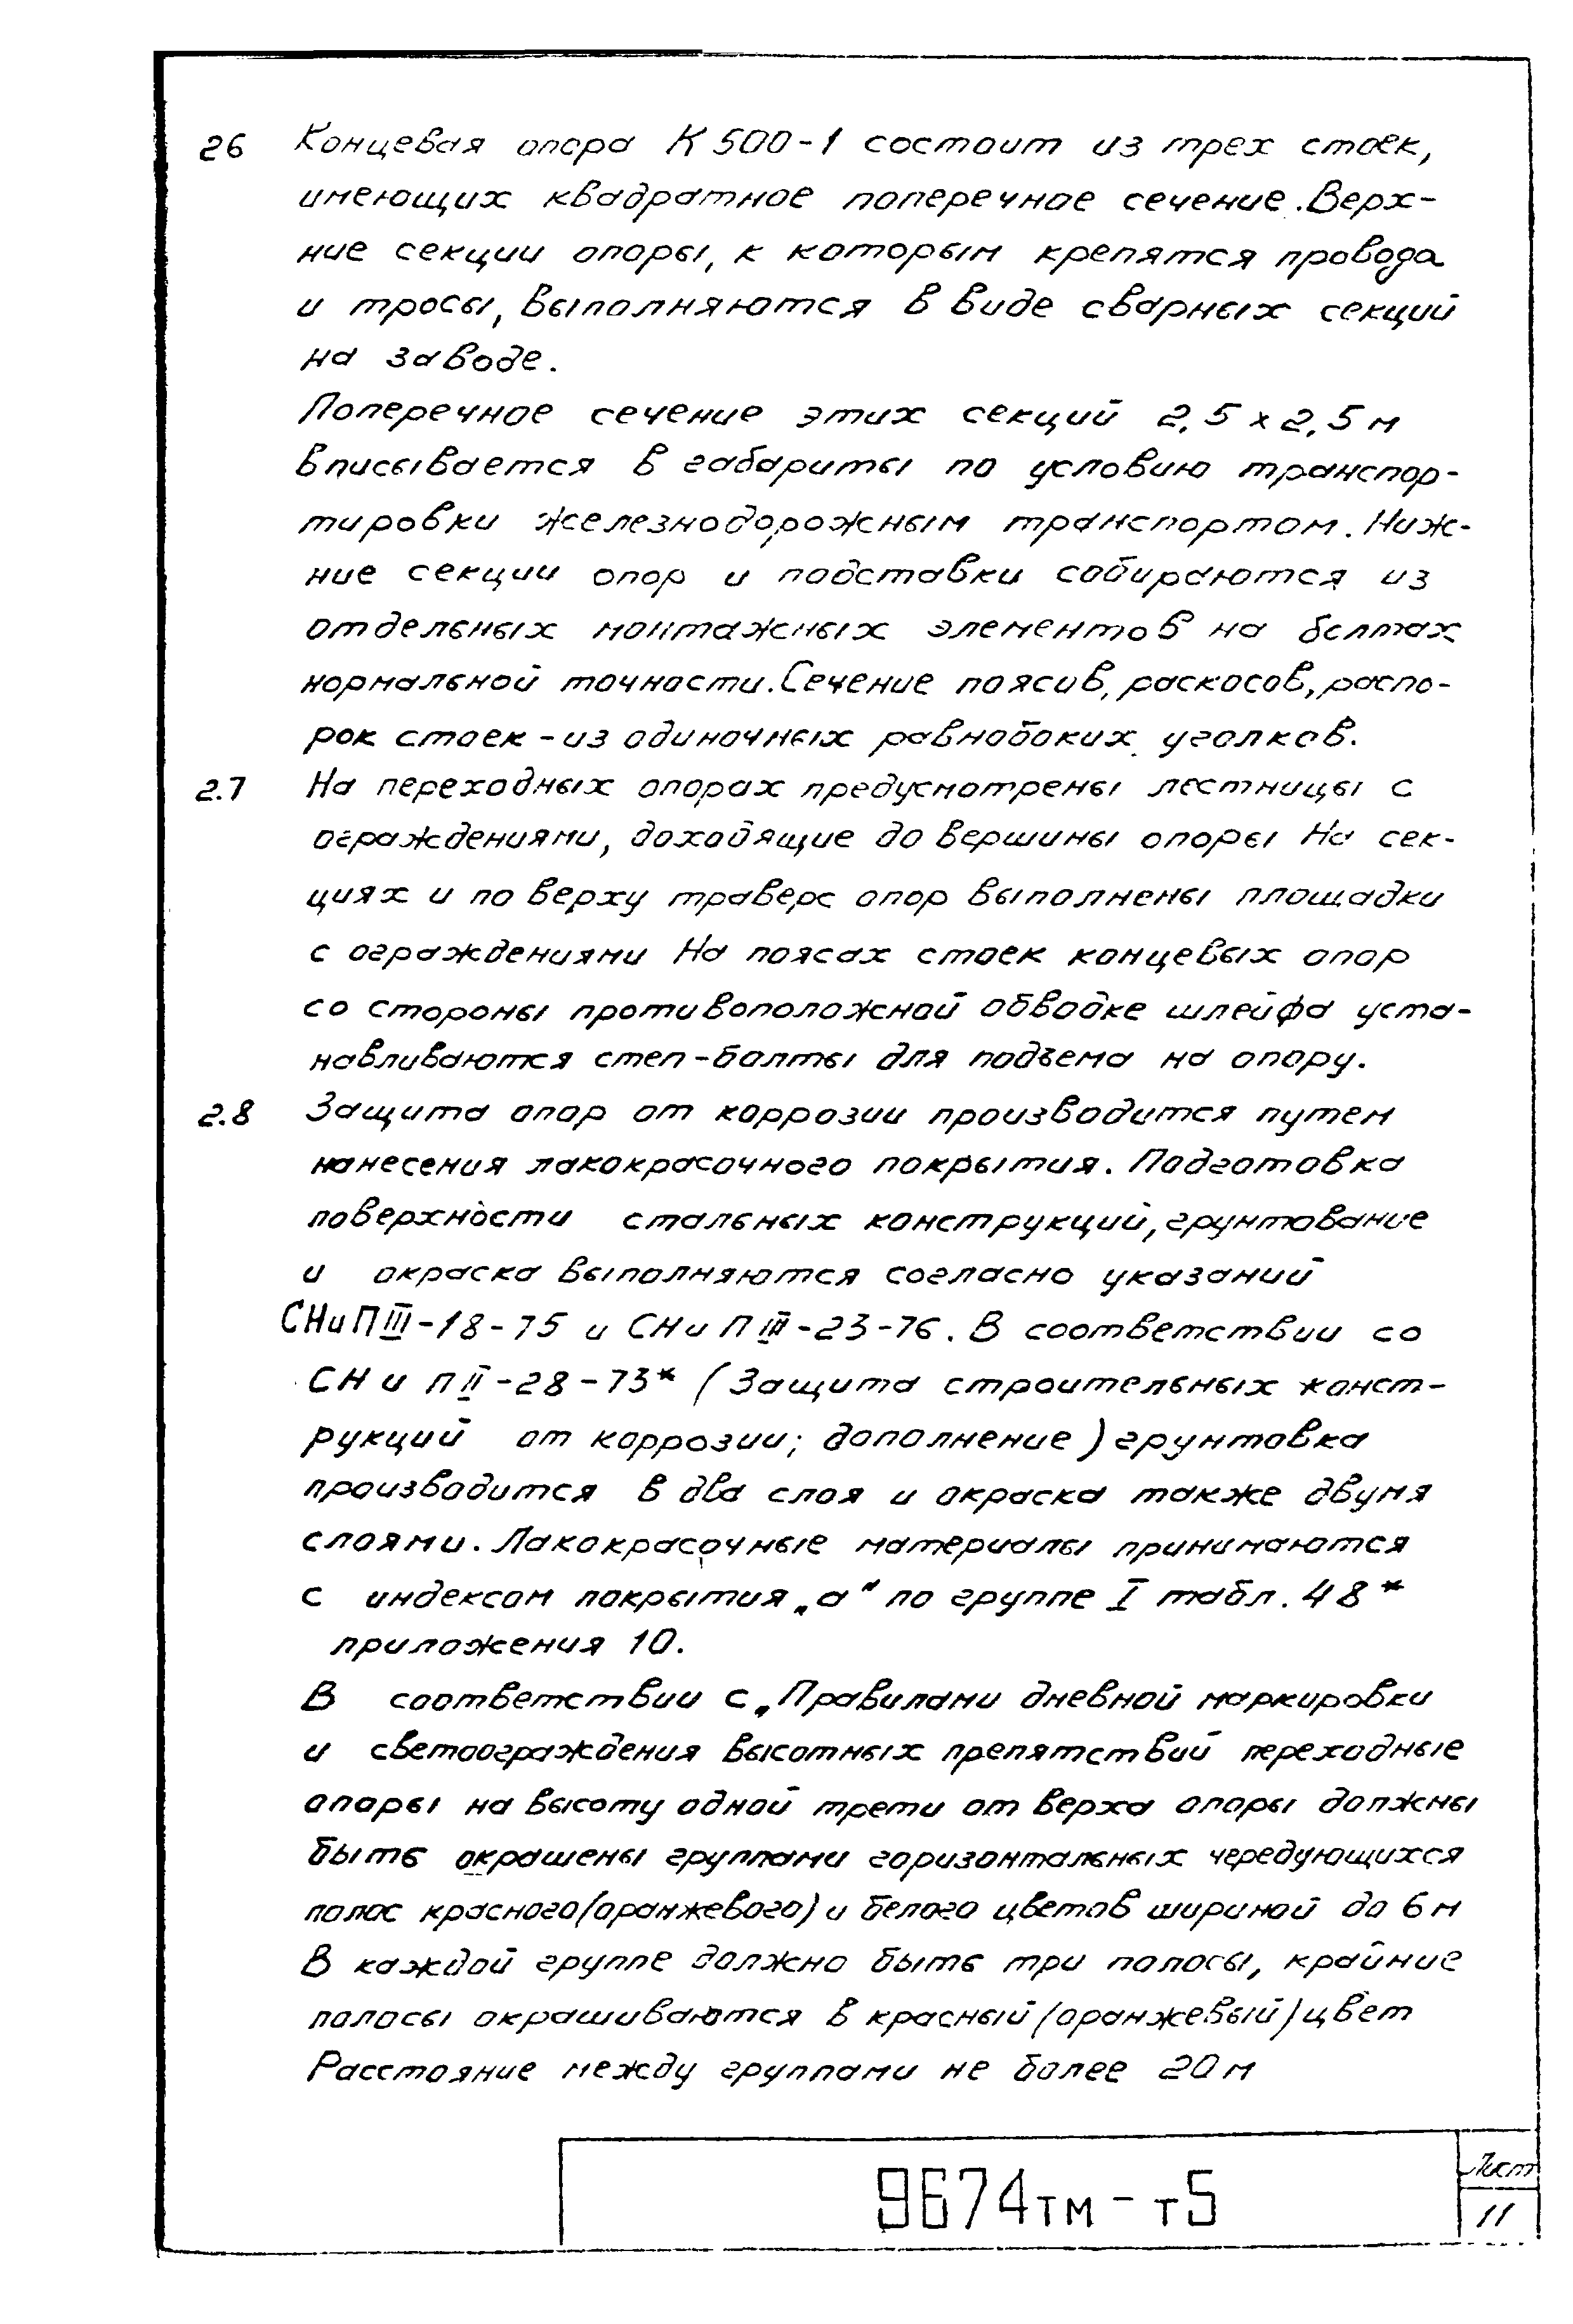 26 Концевая опора К500-1 состоит из трех стоек,
имеющих квадратное поперечное сечение. Верх-
ние секции опоры, к которым крепятся провода
и тросы, выполняются в виде сварных секций
на заводе.
Поперечное сечение этих секций 2,5 х 2,5 м
вписывается в габариты по условию транспор-
тировки железнодорожным транспортом. Ниж-
ние секции опор и подставки собираются из
отдельных монтажных элементов на болтах
нормальной точности. Сечение поясов, раскосов, распо-
рок стоек - из одиночных равнобоких уголков.
2.7 На переходных опорах предусмотрены лестницы с
ограждениями, доходящие до вершины опоры На сек-
циях и по верху траверс опор выполнены площадки
с ограждениями На поясах стоек концевых опор
со стороны противоположной обводке шлейфа уста-
навливаются степ-болты для подъема на опору.
2.8 Защита опор от коррозии производится путем
нанесения лакокрасочного покрытия. Подготовка
поверхности стальных конструкций, грунтование
и окраска выполняются согласно указаний
СНиП III-18-75 и СНиП III-23-76. В соответствии со
СНиП II-28-73* (Защита строительных конст-
рукций от коррозии; дополнение) грунтовка
производится в два слоя и окраска также двумя
слоями. Лакокрасочные материалы принимаются
с индексом покрытия „а" по группе I табл. 48*
приложения 10.
В соответствии с „Правилами дневной маркировки
и светоограждения высотных препятствий переходные
опоры на высоту одной трети от верха опоры должны
быть окрашены группами горизонтальных чередующихся
полос красного (оранжевого) и белого цветов шириной до 6 м
В каждой группе должно быть три полосы, крайние
полосы окрашиваются в красный (оранжевый) цвет
Расстояние между группами не более 20 м
9674тм-т5
Лист
11